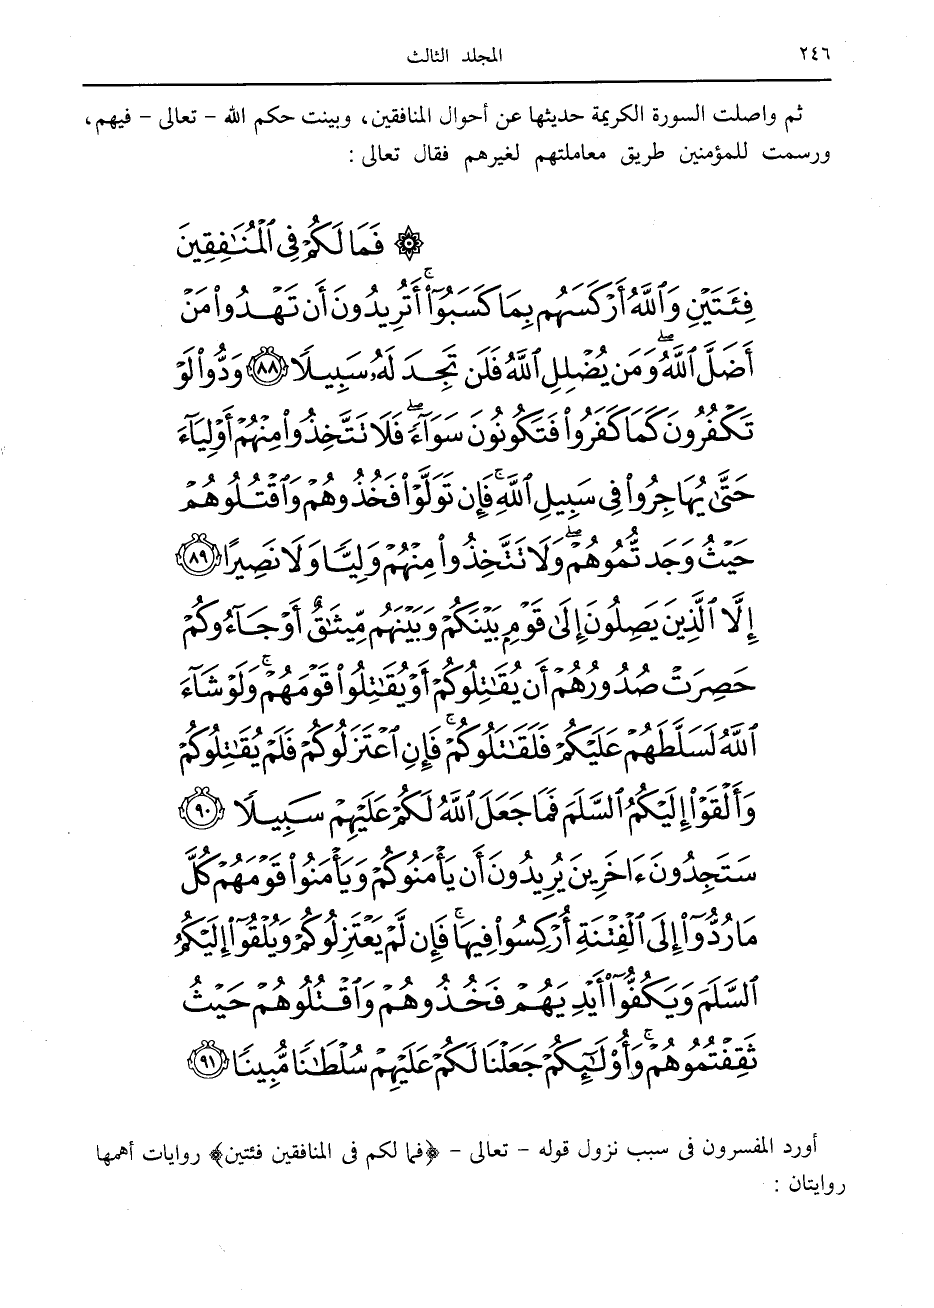 ٢٤٦ المجلد الثالث
ثم واصلت السورة الكريمة حديثها عن أحوال المنافقين، وبينت حكم الله - تعالى - فيهم،
ورسمت للمؤمنين طريق معاملتهم لغيرهم فقال تعالى :
۞ فَمَا لَكُمْ فِى ٱلْمُنَٰفِقِينَ
فِئَتَيْنِ وَٱللَّهُ أَرْكَسَهُم بِمَا كَسَبُوٓا۟ ۚ أَتُرِيدُونَ أَن تَهْدُوا۟ مَنْ
أَضَلَّ ٱللَّهُ ۖ وَمَن يُضْلِلِ ٱللَّهُ فَلَن تَجِدَ لَهُۥ سَبِيلًا ٨٨ وَدُّوا۟ لَوْ
تَكْفُرُونَ كَمَا كَفَرُوا۟ فَتَكُونُونَ سَوَآءً ۖ فَلَا تَتَّخِذُوا۟ مِنْهُمْ أَوْلِيَآءَ
حَتَّىٰ يُهَاجِرُوا۟ فِى سَبِيلِ ٱللَّهِ ۚ فَإِن تَوَلَّوْا۟ فَخُذُوهُمْ وَٱقْتُلُوهُمْ
حَيْثُ وَجَدتُّمُوهُمْ ۖ وَلَا تَتَّخِذُوا۟ مِنْهُمْ وَلِيًّا وَلَا نَصِيرًا ٨٩
إِلَّا ٱلَّذِينَ يَصِلُونَ إِلَىٰ قَوْمٍۭ بَيْنَكُمْ وَبَيْنَهُم مِّيثَٰقٌ أَوْ جَآءُوكُمْ
حَصِرَتْ صُدُورُهُمْ أَن يُقَٰتِلُوكُمْ أَوْ يُقَٰتِلُوا۟ قَوْمَهُمْ ۚ وَلَوْ شَآءَ
ٱللَّهُ لَسَلَّطَهُمْ عَلَيْكُمْ فَلَقَٰتَلُوكُمْ ۚ فَإِنِ ٱعْتَزَلُوكُمْ فَلَمْ يُقَٰتِلُوكُمْ
وَأَلْقَوْا۟ إِلَيْكُمُ ٱلسَّلَمَ فَمَا جَعَلَ ٱللَّهُ لَكُمْ عَلَيْهِمْ سَبِيلًا ٩٠
سَتَجِدُونَ ءَاخَرِينَ يُرِيدُونَ أَن يَأْمَنُوكُمْ وَيَأْمَنُوا۟ قَوْمَهُمْ كُلَّ
مَا رُدُّوٓا۟ إِلَى ٱلْفِتْنَةِ أُرْكِسُوا۟ فِيهَا ۚ فَإِن لَّمْ يَعْتَزِلُوكُمْ وَيُلْقُوٓا۟ إِلَيْكُمُ
ٱلسَّلَمَ وَيَكُفُّوٓا۟ أَيْدِيَهُمْ فَخُذُوهُمْ وَٱقْتُلُوهُمْ حَيْثُ
ثَقِفْتُمُوهُمْ ۚ وَأُو۟لَٰٓئِكُمْ جَعَلْنَا لَكُمْ عَلَيْهِمْ سُلْطَٰنًا مُّبِينًا ٩١
أورد المفسرون فى سبب نزول قوله - تعالى - ﴿فما لكم فى المنافقين فئتين﴾ روايات أهمها
روايتان :